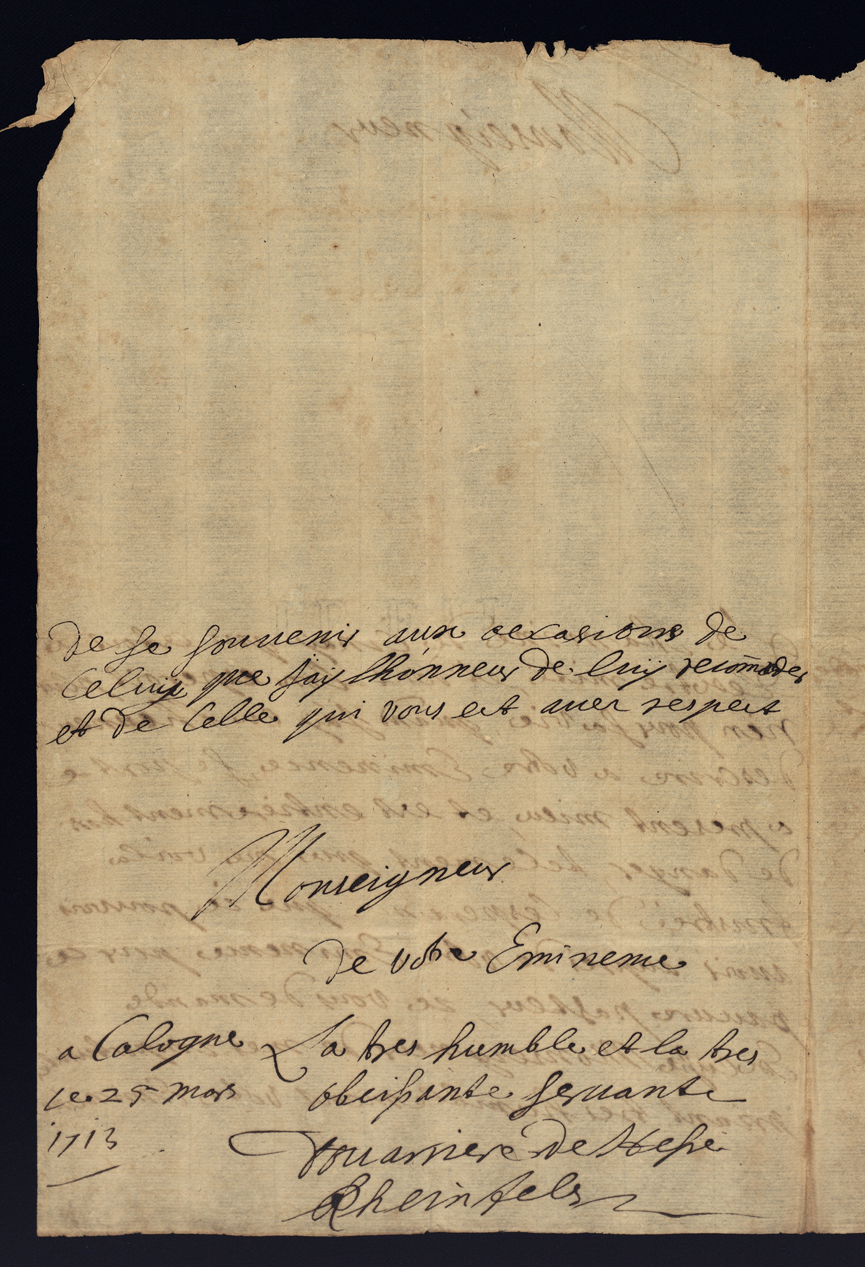 de se souuenir aux occasions de
Celuy que jay lhonneur de luy recom̄ader
et de Celle qui vous est auec respect
Monseigneur
de votre Eminence
a Cologne
ce 25 mars
1713
La tres humble et la tres
obeissante seruante
Douairiere de Hesse
Rheinfels